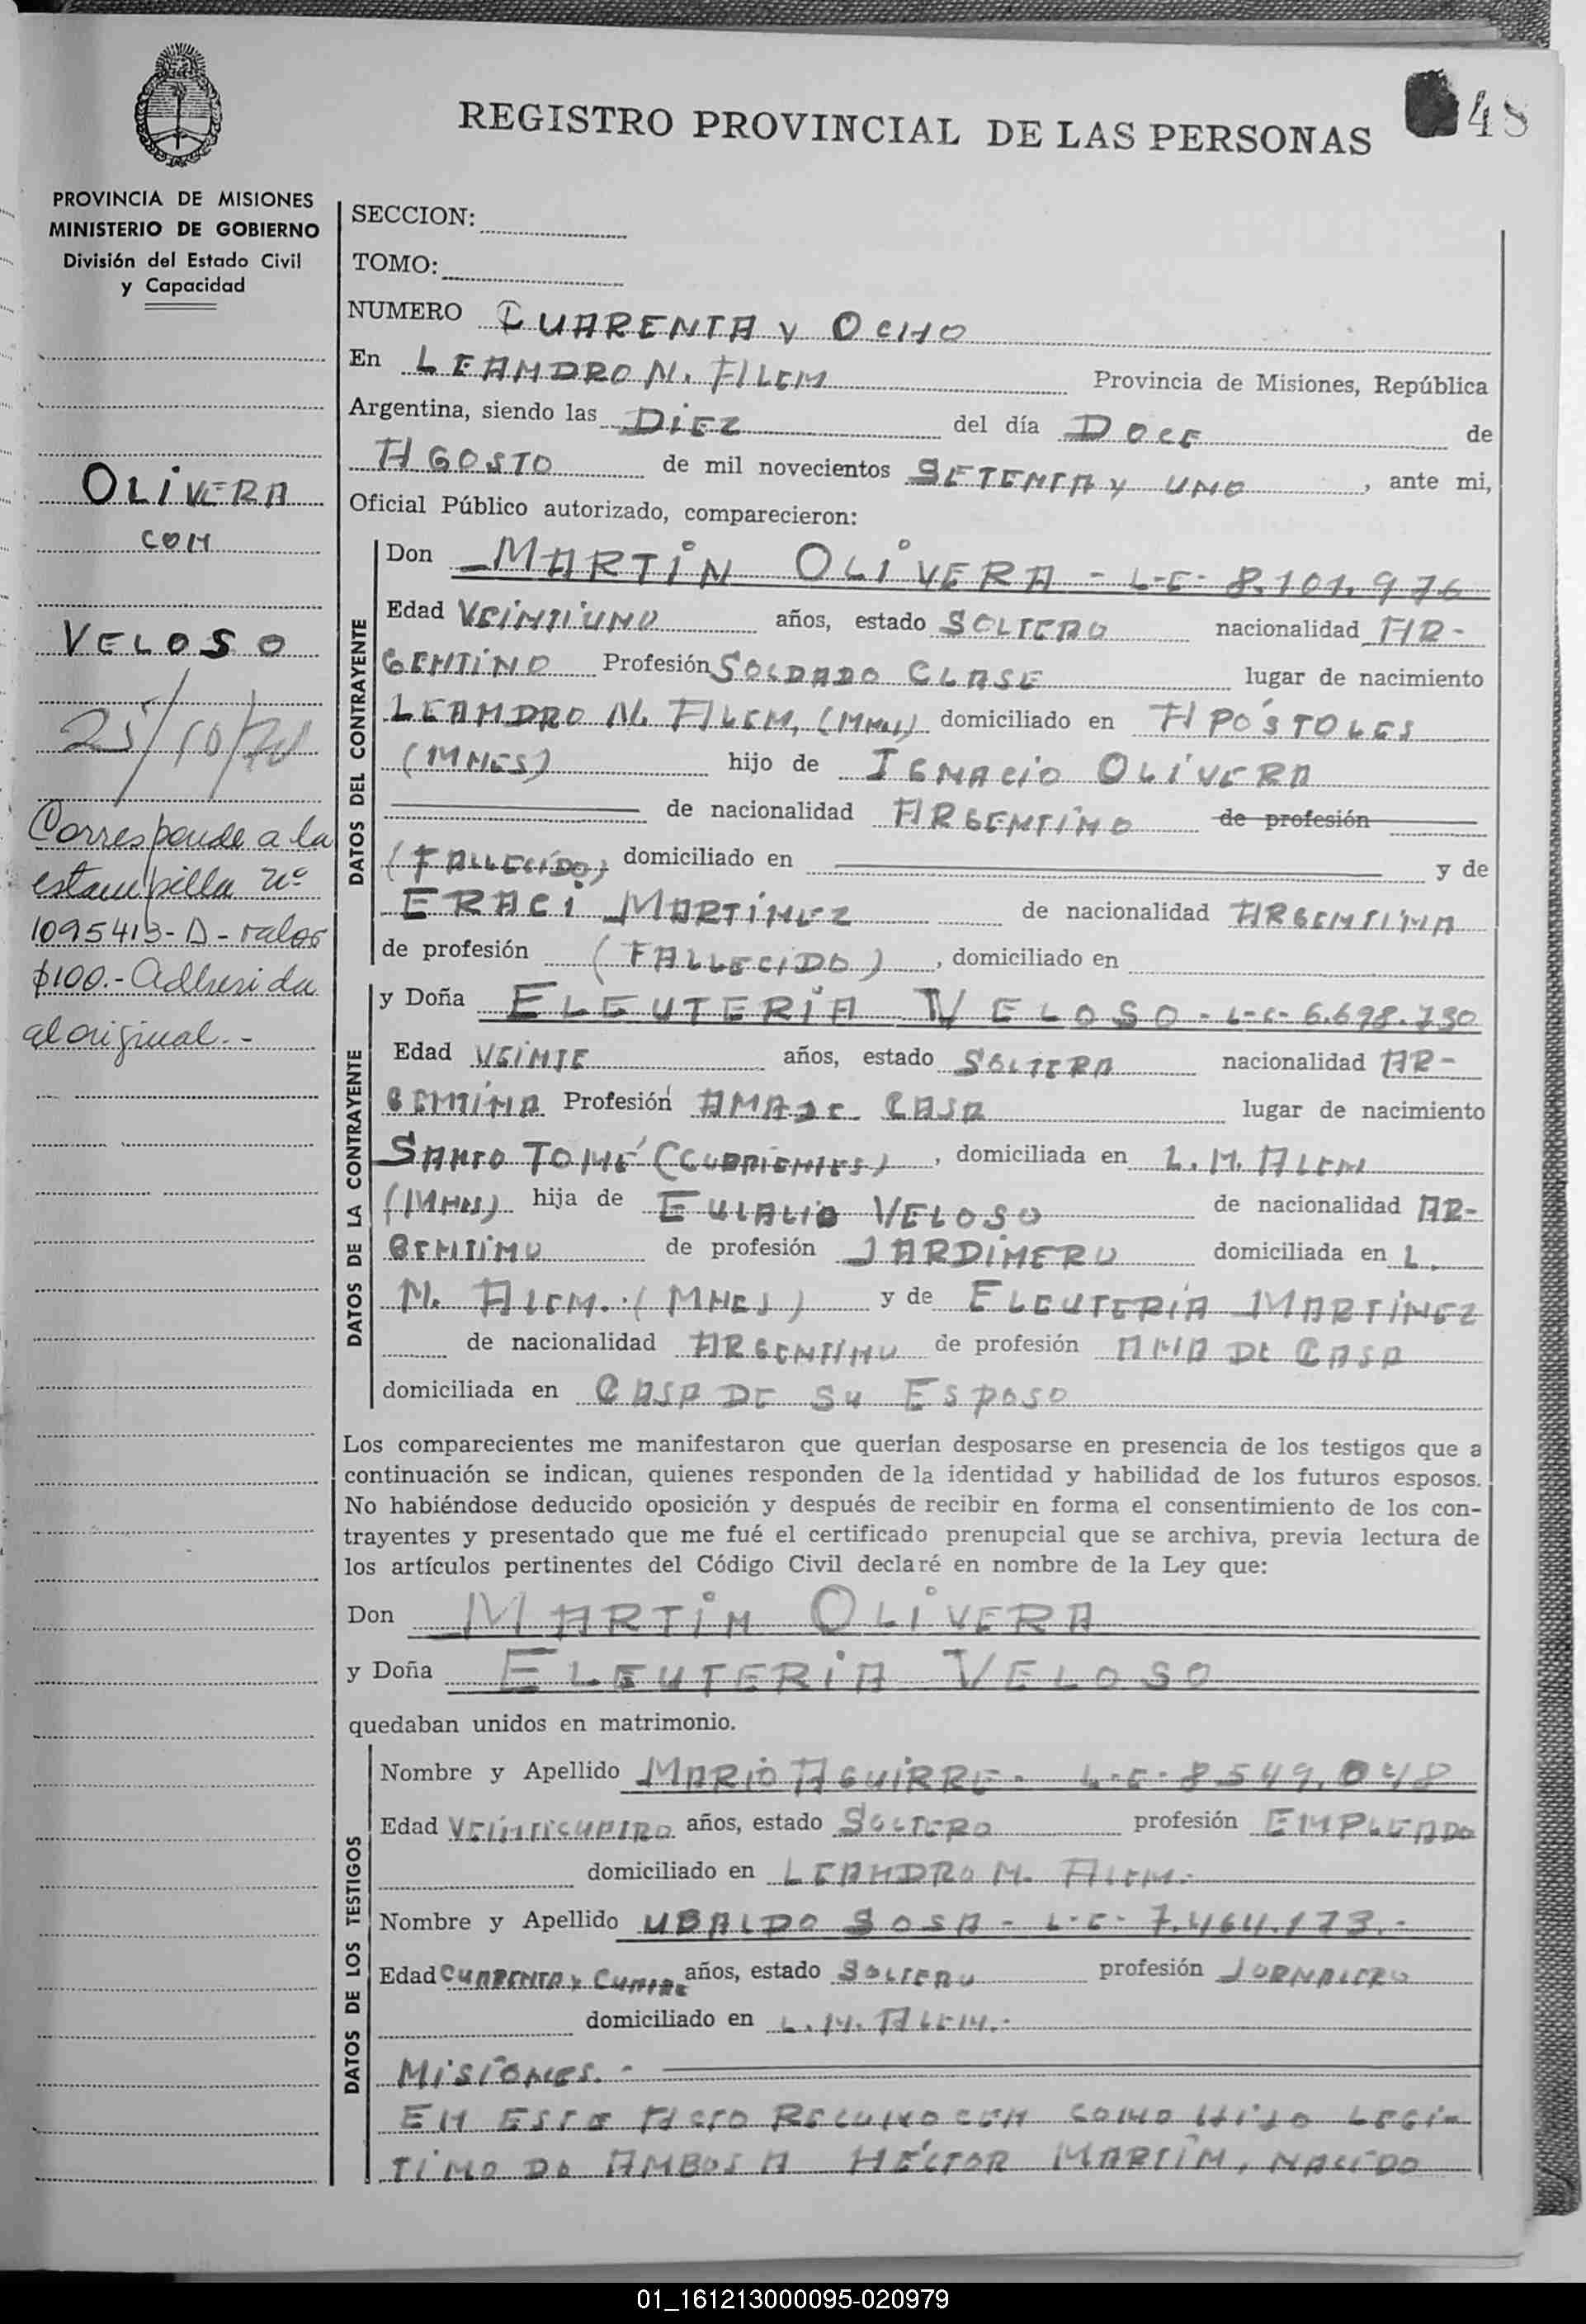 REGISTRO PROVINCIAL DE LAS PERSONAS
48
PROVINCIA DE MISIONES
MINISTERIO DE GOBIERNO
División del Estado Civil
y Capacidad
OLIVERA
CON
VELOSO
Corresponde a la
estampilla nº
1095413-D-valor
$100.- Adherida
al original.-
SECCION:
TOMO:
NUMERO CUARENTA Y OCHO
En LEANDRO N. ALEM Provincia de Misiones, República
Argentina, siendo las DIEZ del día DOCE de
AGOSTO de mil novecientos SETENTA Y UNO, ante mi,
Oficial Público autorizado, comparecieron:
DATOS DEL CONTRAYENTE
Don MARTIN OLIVERA - L-E- 8.101.976
Edad VEINTIUNO años, estado SOLTERO nacionalidad AR-
GENTINO Profesión SOLDADO CLASE lugar de nacimiento
LEANDRO N. ALEM, (MNES) domiciliado en APÓSTOLES
(MNES) hijo de IGNACIO OLIVERA
de nacionalidad ARGENTINO de profesión
(FALLECIDO) domiciliado en y de
ERACI MARTINEZ de nacionalidad ARGENTINA
de profesión (FALLECIDO), domiciliado en
DATOS DE LA CONTRAYENTE
y Doña ELEUTERIA VELOSO - L-C- 6.698.730
Edad VEINTE años, estado SOLTERA nacionalidad AR-
GENTINA Profesión AMA DE CASA lugar de nacimiento
SANTO TOMÉ (CORRIENTES), domiciliada en L. N. ALEM
(MNES) hija de EULALIO VELOSO de nacionalidad AR-
GENTINO de profesión JARDINERO domiciliada en L.
N. ALEM. (MNES) y de ELEUTERIA MARTINEZ
de nacionalidad ARGENTINO de profesión AMA DE CASA
domiciliada en CASA DE SU ESPOSO
Los comparecientes me manifestaron que querían desposarse en presencia de los testigos que a
continuación se indican, quienes responden de la identidad y habilidad de los futuros esposos.
No habiéndose deducido oposición y después de recibir en forma el consentimiento de los con-
trayentes y presentado que me fué el certificado prenupcial que se archiva, previa lectura de
los artículos pertinentes del Código Civil declaré en nombre de la Ley que:
Don MARTIN OLIVERA
y Doña ELEUTERIA VELOSO
quedaban unidos en matrimonio.
DATOS DE LOS TESTIGOS
Nombre y Apellido MARIO AGUIRRE - L-E- 8.549.048
Edad VEINTICUATRO años, estado SOLTERO profesión EMPLEADO
domiciliado en LEANDRO N. ALEM.-
Nombre y Apellido UBALDO SOSA - L-E- 7.464.173.-
Edad CUARENTA Y CUATRO años, estado SOLTERO profesión JORNALERO
domiciliado en L. N. ALEM.-
MISIONES.-
EN ESTE ACTO RECONOCEN COMO HIJO LEGI-
TIMO DE AMBOS A HÉCTOR MARTIN, NACIDO
01_161213000095-020979